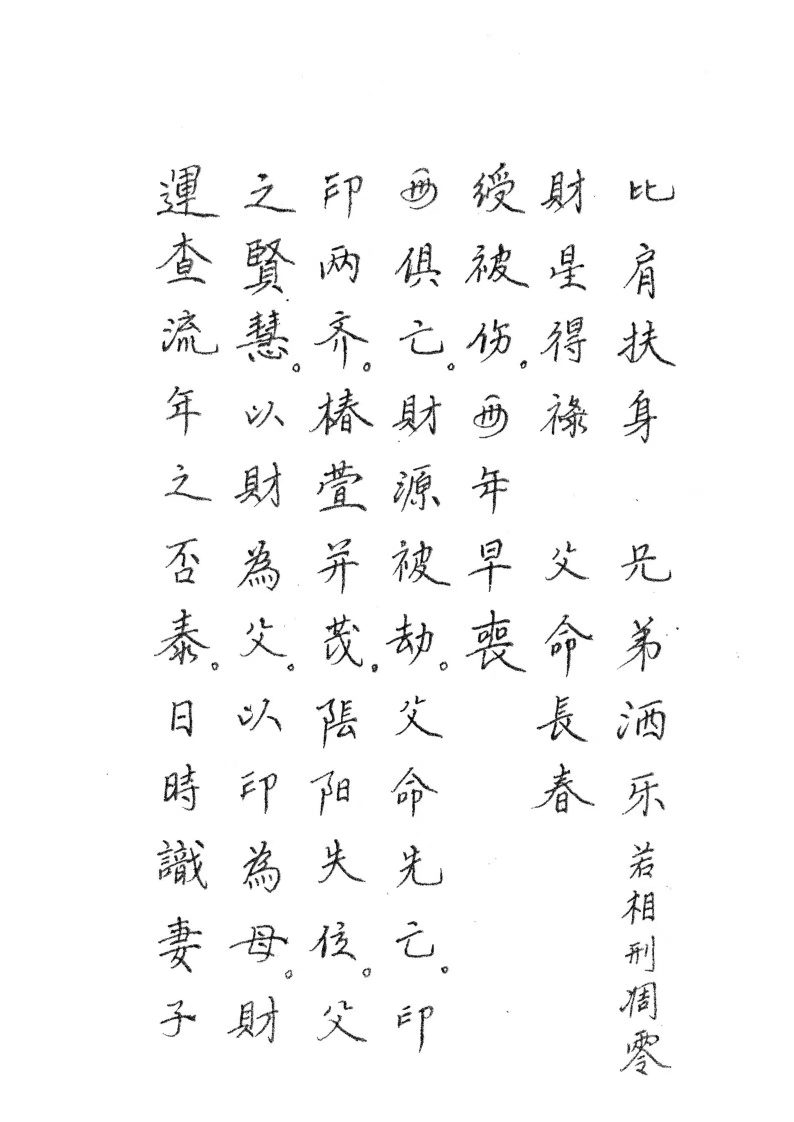 比肩扶身 兄弟洒乐 若相刑凋零
財星得祿 父命長春
綬被伤。年早喪
俱亡。財源被劫。父命先亡。印
印两齐。椿萱并茂。陰阳失位。父
之賢慧。以財為父。以印為母。財
運查流年之否泰。日時識妻子